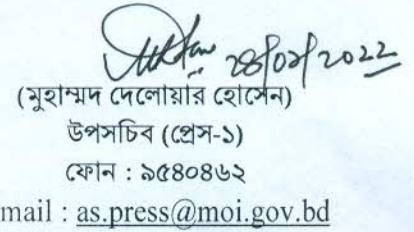 ২৪/০২/২০২২
(মুহাম্মদ দেলোয়ার হোসেন)
উপসচিব (প্রেস-১)
ফোন : ৯৫৪০৪৬২
mail : as.press@moi.gov.bd